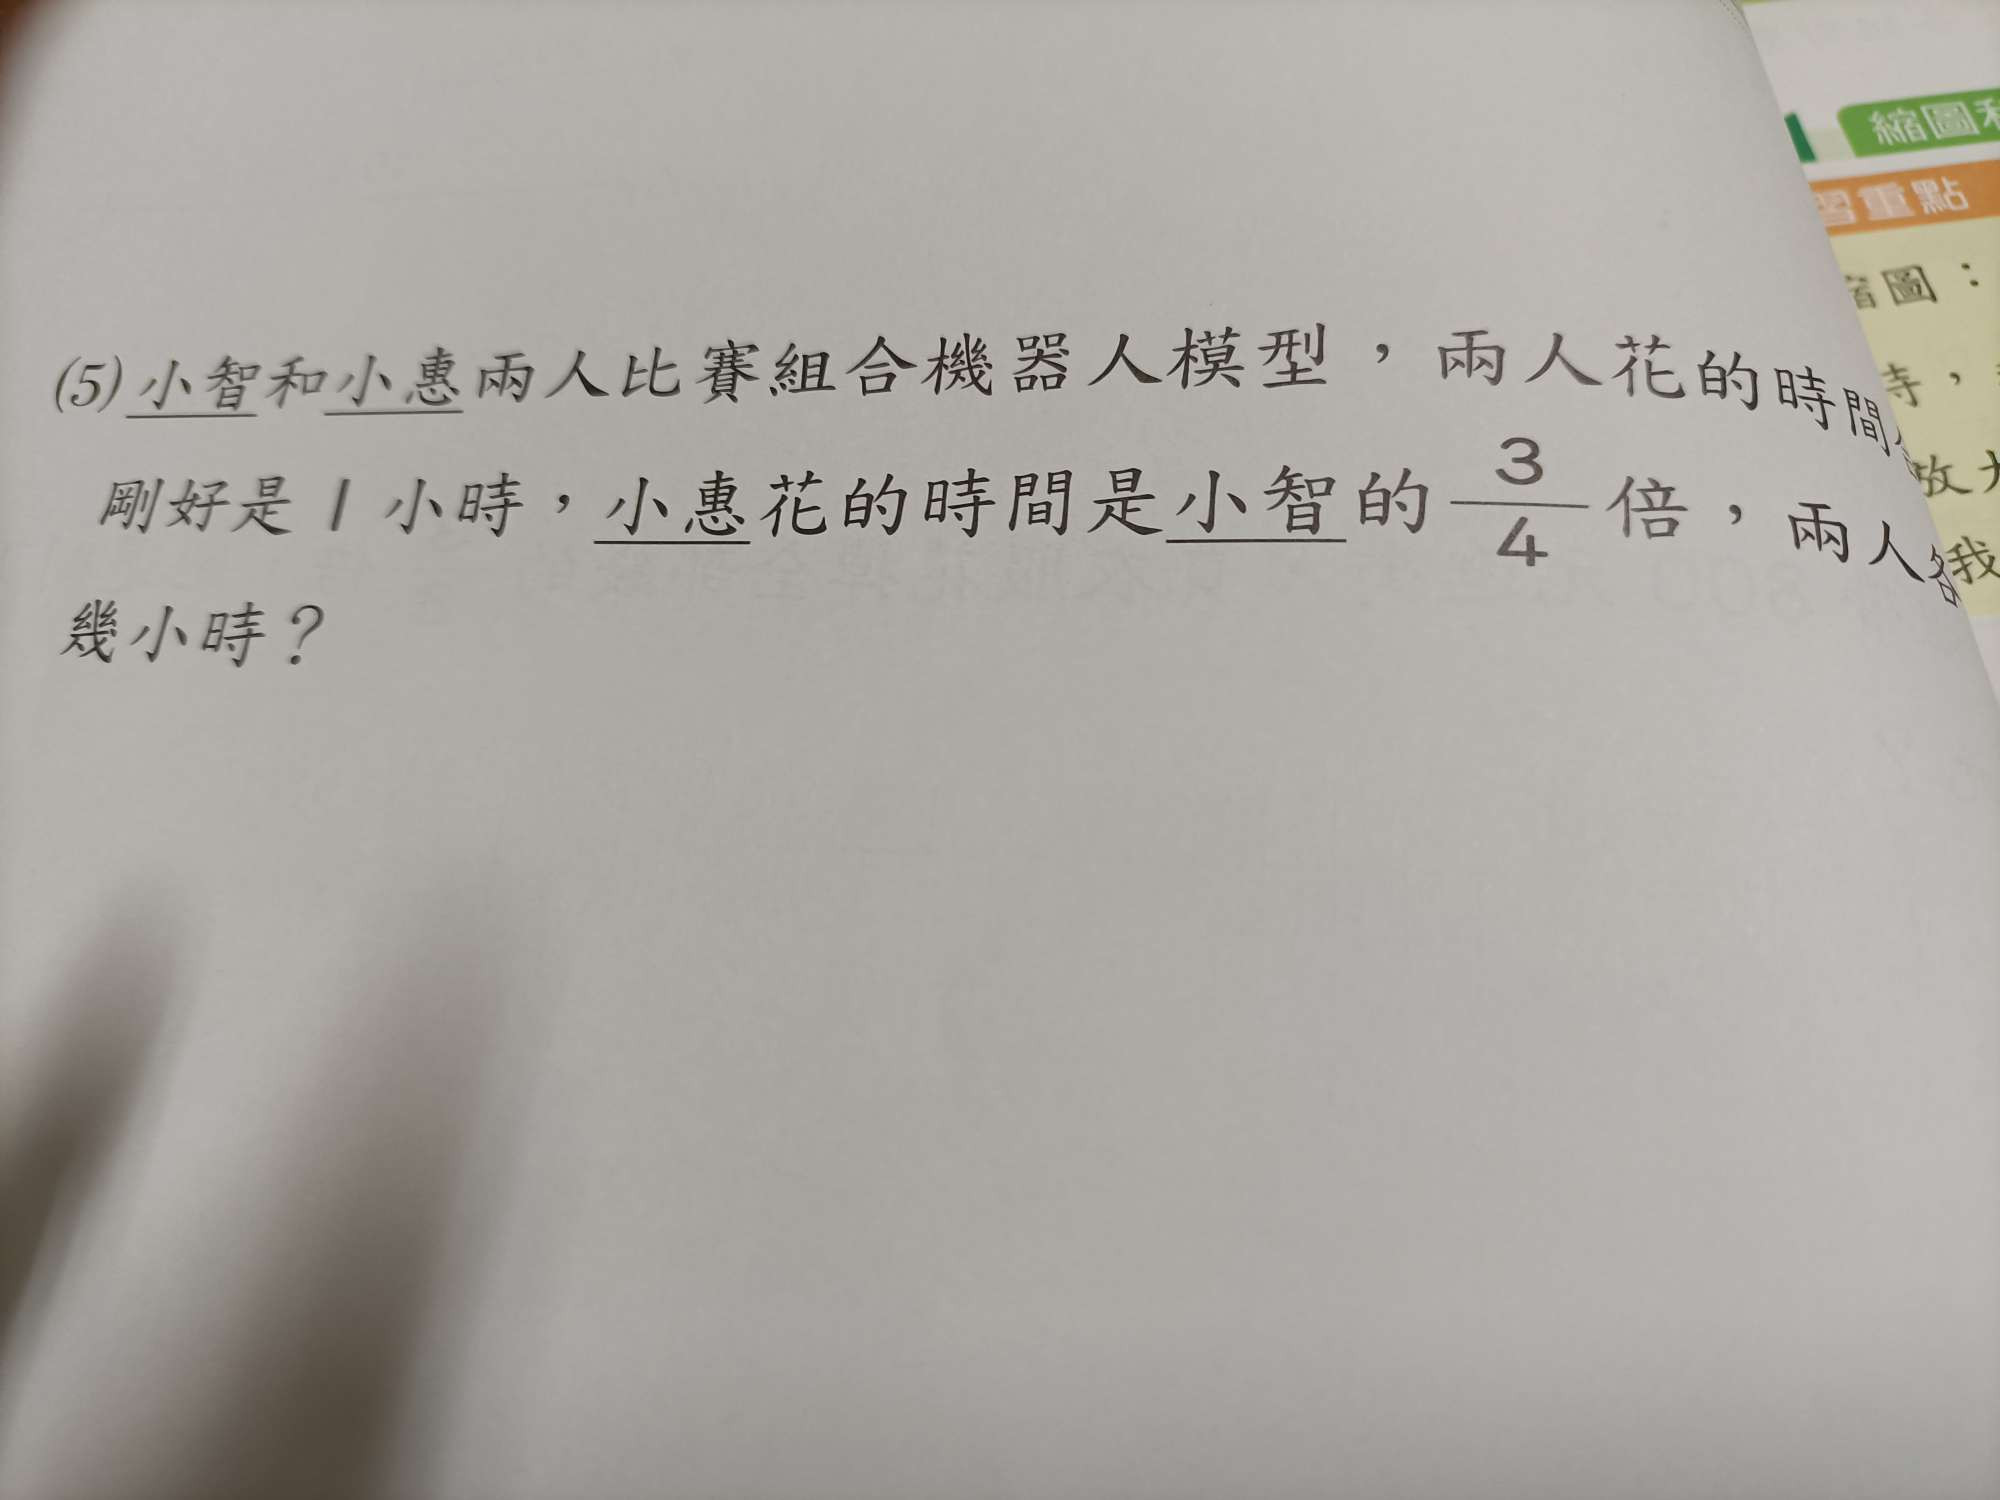 (5)小智和小惠兩人比賽組合機器人模型，兩人花的時間
剛好是1小時，小惠花的時間是小智的3/4倍，兩人各
幾小時？
縮圖
習重點
縮圖：
時，
放大
我